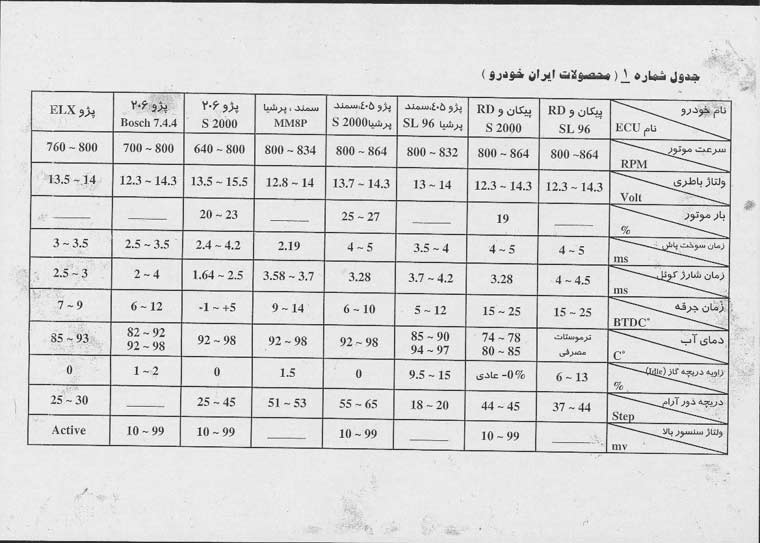 جدول شماره ۱ ( محصولات ایران خودرو )
نام خودرو پیکان و RD پیکان و RD پژو ٤٠٥،سمند پژو ٤٠٥،سمند سمند ، پرشیا پژو ۲۰۶ پژو ۲۰۶ پژو ELX
نام ECU SL 96 S 2000 پرشیا SL 96 پرشیا S 2000 MM8P S 2000 Bosch 7.4.4
سرعت موتور RPM 800 ~864 800 ~ 864 800 ~ 832 800 ~ 864 800 ~ 834 640 ~ 800 700 ~ 800 760 ~ 800
ولتاژ باطری Volt 12.3 ~ 14.3 12.3 ~ 14.3 13 ~ 14 13.7 ~ 14.3 12.8 ~ 14 13.5 ~ 15.5 12.3 ~ 14.3 13.5 ~ 14
بار موتور % ____ 19 ____ 25 ~ 27 ____ 20 ~ 23 ____ ____
زمان سوخت پاش ms 4 ~ 5 4 ~ 5 3.5 ~ 4 4 ~ 5 2.19 2.4 ~ 4.2 2.5 ~ 3.5 3 ~ 3.5
زمان شارژ کوئل ms 4 ~ 4.5 3.28 3.7 ~ 4.2 3.28 3.58 ~ 3.7 1.64 ~ 2.5 2 ~ 4 2.5 ~ 3
زمان جرقه BTDC° 15 ~ 25 15 ~ 25 5 ~ 12 6 ~ 10 9 ~ 14 -1 ~ +5 6 ~ 12 7 ~ 9
دمای آب C° ترموستات 74 ~ 78 85 ~ 90 92 ~ 98 92 ~ 98 92 ~ 98 82 ~ 92 85 ~ 93
مصرفی 80 ~ 85 94 ~ 97 92 ~ 98
زاویه دریچه گاز (Idle) % 6 ~ 13 0%- عادی 9.5 ~ 15 0 1.5 0 1 ~ 2 0
دریچه دور آرام Step 37 ~ 44 44 ~ 45 18 ~ 20 55 ~ 65 51 ~ 53 25 ~ 45 ____ 25 ~ 30
ولتاژ سنسور بالا mv ____ 10 ~ 99 ____ 10 ~ 99 ____ 10 ~ 99 10 ~ 99 Active